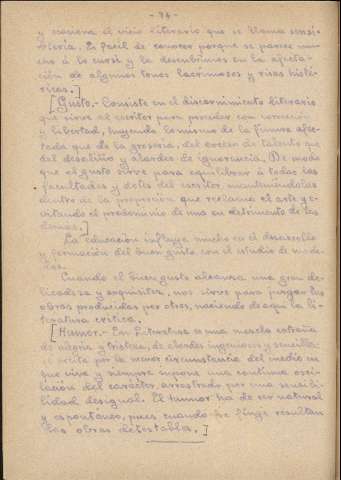 - 94 -
y enerva el vicio literario que se llama sensi-
blería. Es fácil de conocer porque se parece mu-
cho á lo cursi y la descubrimos en la afecta-
ción de algunos tonos lacrimosos y risas histé-
ricas.]
[Gusto.- Consiste en el discernimiento literario
que sirve al escritor para proceder con corrección
y libertad, huyendo lo mismo de la finura afec-
tada que de la grosería, del exceso de talento que
del desaliño y alardes de ignorancia. De modo
que el gusto sirve para equilibrar á todas las
facultades y dotes del escritor manteniéndolas
dentro de la proporción que reclama el arte y e-
vitando el predominio de una en detrimento de las
demás.]
La educación influye mucho en el desarrollo
y formación del buen gusto con el estudio de mode-
los.
Cuando el buen gusto alcanza una gran de-
licadeza y exquisitez, nos sirve para juzgar las
obras producidas por otros, naciendo de aquí la li-
teratura crítica.
[Humor.- En literatura es una mezcla extraña
de alegría y tristeza, de alardes ingeniosos y sencillos:
se excita por la menor circunstancia del medio en
que vive y siempre supone una continua osci-
lación del carácter, arrastrado por una sensibi-
lidad desigual. El humor ha de ser natural
y espontáneo, pues cuando se finge resultan
las obras detestables.]